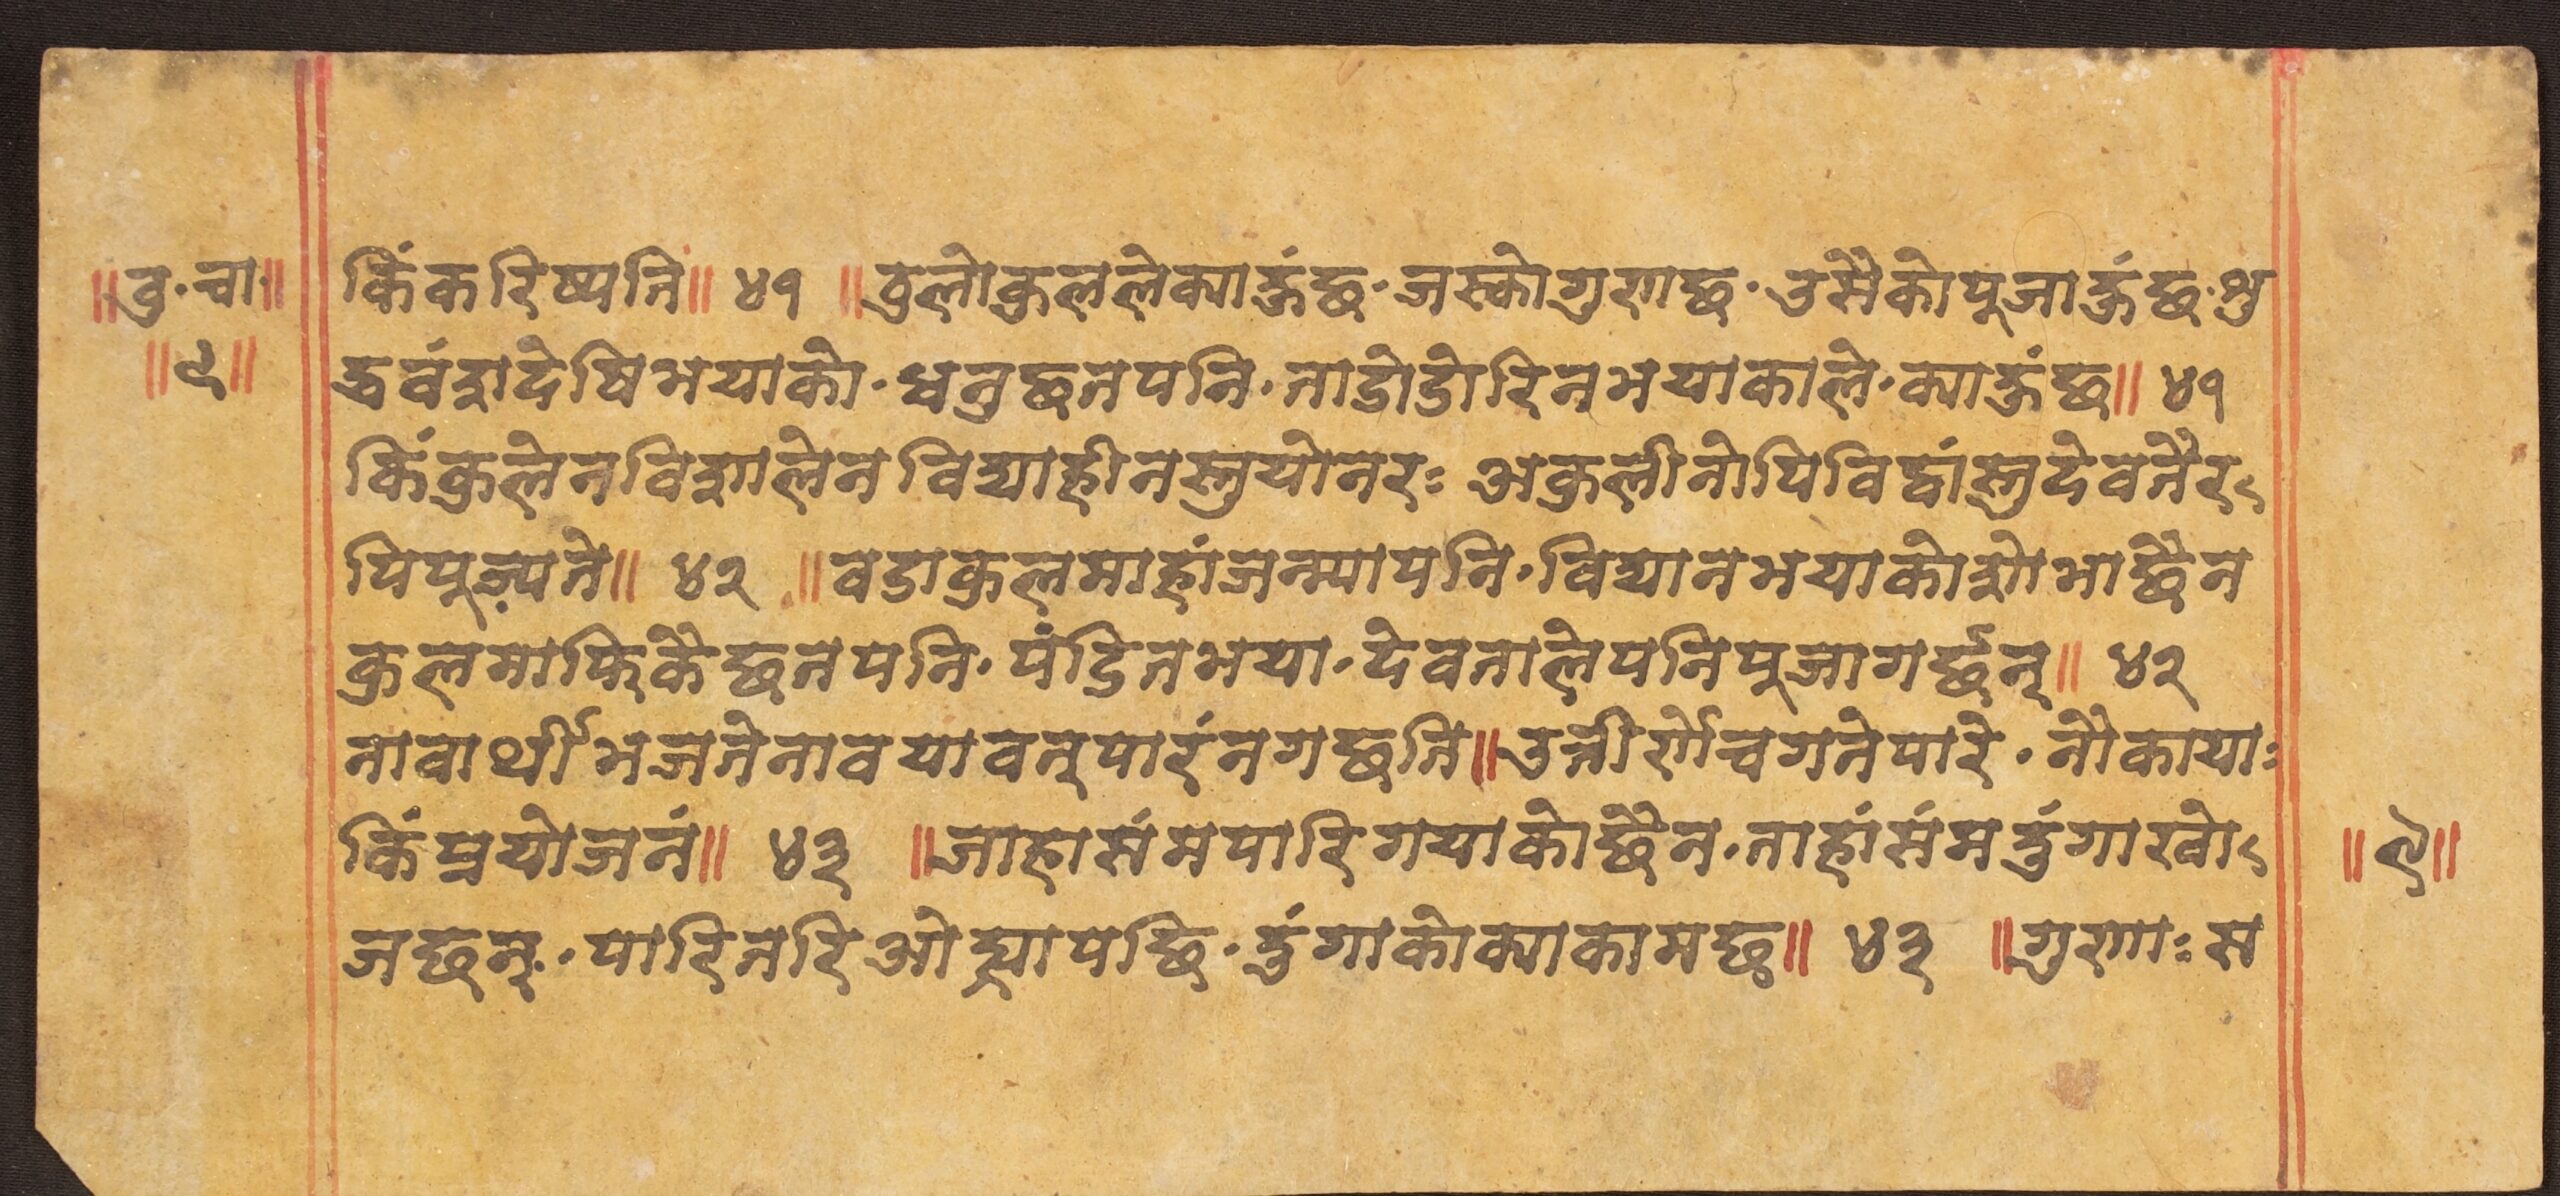 ॥वु·चा॥
॥९॥
किंकरिष्यति॥ ४१ ॥ठुलोकुललेक्याहुंछ·जस्कोगुणछ·उसैकोपूजाहुंछ·शु
द्धवंशदेषिभयाको·धनुछनपनि·ताडोडोरिनभयाकाले·क्याहुंछ॥ ४१
किंकुलेनविशालेनविद्याहीनस्तुयोनरः अकुलीनोपिविद्वांस्तुदेवतैर
पिपूज्यते॥ ४२ ॥वडाकुलमाहांजन्म्यापनि·विद्यानभयाकोशोभाछैन
कुलमाफिकैछनपनि·पंडितभया·देवतालेपनिपूजागर्छन्॥ ४२
नावार्थीभजतेनावयावत्पारंनगछति॥उत्तीर्णेचगतेपारे·नौकायाः
किंप्रयोजनं॥ ४३ ॥जाहासंमपारिगयाकोछैन·ताहांसंमडुंगारखो
जछन्·पारितरिओह्यापछि·डुंगाकोक्याकामछ॥ ४३ ॥गुणाःस
॥९॥